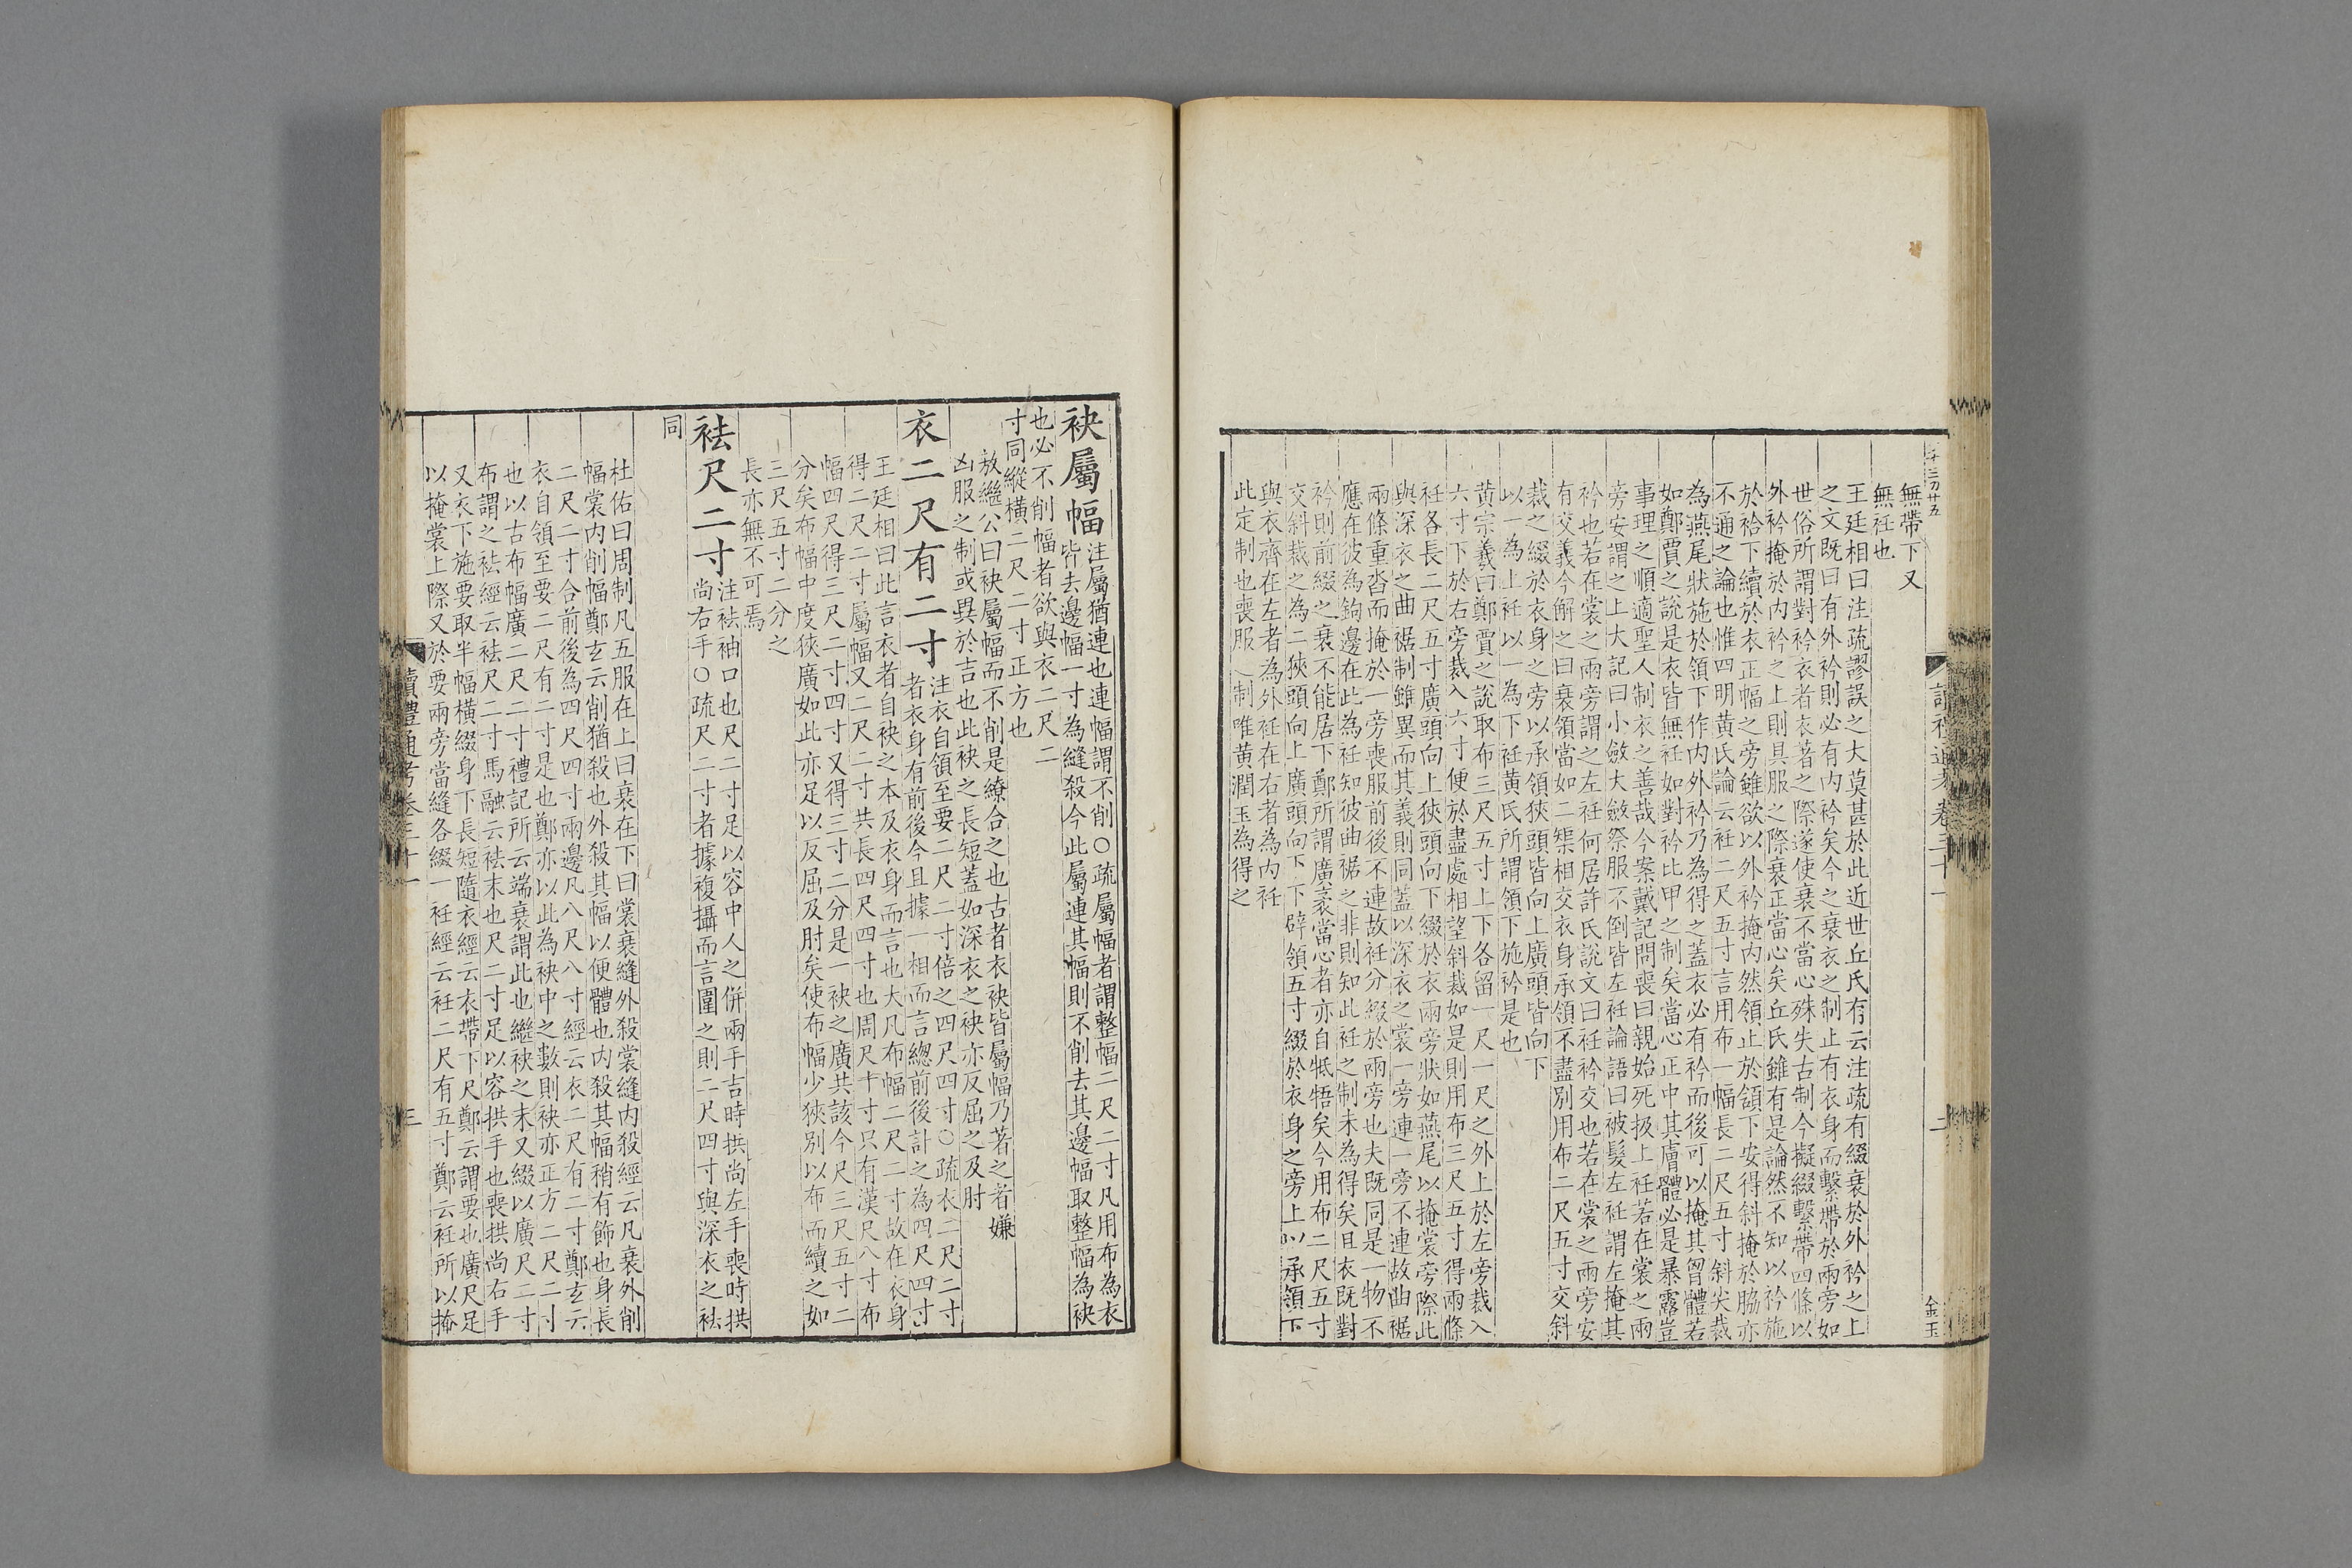 無帶下又
無衽也
王廷相曰注疏謬誤之大莫甚於此近世丘氏有云注疏有綴衰於外衿之上
之文既曰有外衿則必有内衿矣今之衰衣之制止有衣身而繫帶於兩旁如
世俗所謂對衿衣者衣著之際遂使衰不當心殊失古制今擬綴繫帶四條以
外衿掩於内衿之上則具服之際衰正當心矣丘氏雖有是論然不知以衿施
於袷下續於衣正幅之旁雖欲以外衿掩内然領止於頷下安得斜掩於脇亦
不通之論也惟四明黄氏論云衽二尺五寸言用布一幅長二尺五寸斜尖裁
為燕尾狀施於領下作内外衿乃為得之蓋衣必有衿而後可以掩其胷體若
如鄭賈之說是衣皆無衽如對衿比甲之制矣當心正中其膚體必是暴露豈
事理之順適聖人制衣之善哉今案戴記問喪曰親始死扱上衽若在裳之兩
旁安謂之上大記曰小斂大斂祭服不倒皆左衽論語曰被髮左衽謂左掩其
衿也若在裳之兩旁謂之左衽何居許氏說文曰衽衿交也若在裳之兩旁安
有交義今解之曰衰領當如二椝相交衣身承領不盡別用布二尺五寸交斜
裁之綴於衣身之旁以承領狹頭皆向上廣頭皆向下
以一為上衽以一為下衽黄氏所謂領下施衿是也
黄宗羲曰鄭賈之說取布三尺五寸上下各留一尺一尺之外上於左旁裁入
六寸下於右旁裁入六寸便於盡處相望斜裁如是則用布三尺五寸得兩條
衽各長二尺五寸廣頭向上狹頭向下綴於衣兩旁狀如燕尾以掩裳旁際此
與深衣之曲裾制雖異而其義則同蓋以深衣之裳一旁連一旁不連故曲裾
兩條重沓而掩於一旁喪服前後不連故衽分綴於兩旁也夫既同是一物不
應在彼為鉤邊在此為衽知彼曲裾之非則知此衽之制未為得矣且衣既對
衿則前綴之衰不能居下鄭所謂廣袤當心者亦自牴牾矣今用布二尺五寸
交斜裁之為二狹頭向上廣頭向下下辟領五寸綴於衣身之旁上以承領下
與衣齊在左者為外衽在右者為内衽
此定制也喪服之制唯黄潤玉為得之
二
金玉
袂屬幅
注屬猶連也連幅謂不削○疏屬幅者謂整幅二尺二寸凡用布為衣
皆去邊幅一寸為縫殺今此屬連其幅則不削去其邊幅取整幅為袂
也必不削幅者欲與衣二尺二
寸同縱橫二尺二寸正方也
敖繼公曰袂屬幅而不削是繚合之也古者衣袂皆屬幅乃著之者嫌
凶服之制或異於吉也此袂之長短蓋如深衣之袂亦反屈之及肘
衣二尺有二寸
注衣自領至要二尺二寸倍之四尺四寸○疏衣二尺二寸
者衣身有前後今且據一相而言總前後計之為四尺四寸
王廷相曰此言衣者自袂之本及衣身而言也大凡布幅二尺二寸故在衣身
得二尺二寸屬幅又二尺二寸共長四尺四寸也周尺十寸只有漢尺八寸布
幅四尺得三尺二寸四寸又得三寸二分是一袂之廣共該今尺三尺五寸二
分矣布幅中度狹廣如此亦足以反屈及肘矣使布幅少狹別以布而續之如
三尺五寸二分之
長亦無不可焉
袪尺二寸
注袪袖口也尺二寸足以容中人之併兩手吉時拱尚左手喪時拱
尚右手○疏尺二寸者據複攝而言圍之則二尺四寸與深衣之袪
同
杜佑曰周制凡五服在上曰衰在下曰裳衰縫外殺裳縫内殺經云凡衰外削
幅裳内削幅鄭玄云削猶殺也外殺其幅以便體也内殺其幅稍有飾也身長
二尺二寸合前後為四尺四寸兩邊凡八尺八寸經云衣二尺有二寸鄭玄云
衣自領至要二尺有二寸是也鄭亦以此為袂中之數則袂亦正方二尺二寸
也以古布幅廣二尺二寸禮記所云端衰謂此也繼袂之末又綴以廣尺二寸
布謂之袪經云袪尺二寸馬融云袪末也尺二寸足以容拱手也喪拱尚右手
又衣下施要取半幅橫綴身下長短隨衣經云衣帶下尺鄭云謂要也廣尺足
以掩裳上際又於要兩旁當縫各綴一衽經云衽二尺有五寸鄭云衽所以掩
讀禮通考卷三十一
三